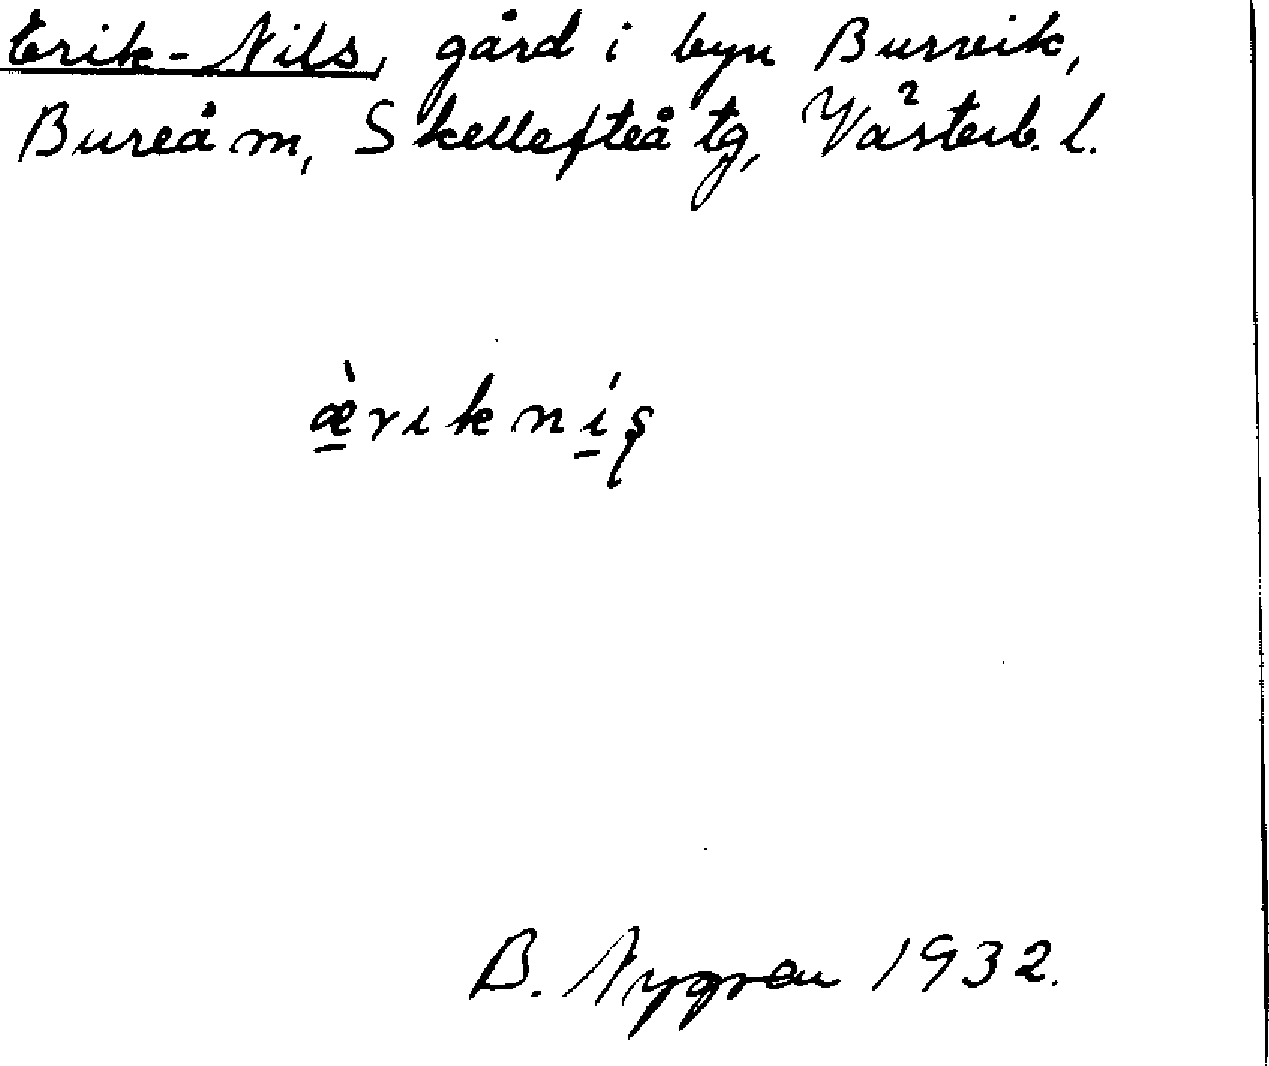 Erik-Nils, gård i byn Burvik,
Bureå m, Skellefteå tg, Västerb. l.
æ̠̀rıkní̠ʂ
B. Nygren 1932.